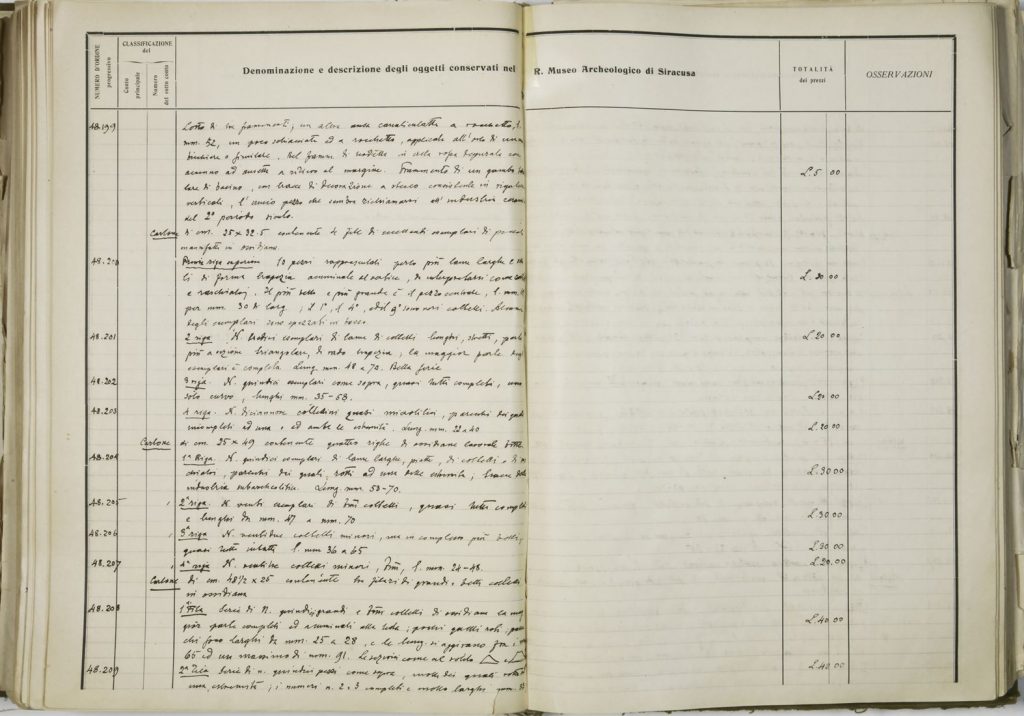 NUMERO D'ORDINE progressivo
CLASSIFICAZIONE del
Conto principale
Numero del sotto conto
Denominazione e descrizione degli oggetti conservati nel R. Museo Archeologico di Siracusa
TOTALITÀ dei prezzi
OSSERVAZIONI
48.199 Lotto di tre frammenti, un a rocchetto,
mm. 32, un poco schiacciato ed a rocchetto, applicato all' orlo di un
bicchiere o simile. Nel
accenno ad ansette a rilievo al margine. Frammento di un
di bacino, con tracce di decorazione a stecco consistente in
verticali, l' unico pezzo che sembra richiamarsi all' industria
del 2° periodo siculo. L. 5 00
Cartone di cm. 25 x 32.5 contenente 4 file di eccellenti esemplari di
manufatti in ossidiana.
48.200 Prima riga superiore 10 pezzi rappresentati per lo più lame larghe e
di forma trapezia acuminate al vertice, da interpretarsi come
e raschiatoj. Il più bello e più grande è il pezzo centrale, l. mm.
per mm. 30 di larg; il 1°, il 4°, ed il 9° sono veri coltelli. Alcuni
degli esemplari sono spezzati in basso. L. 30 00
48.201 2 riga N. tredici esemplari di lame di coltelli lunghi, stretti, per lo
più a sezione triangolare, di rado trapezia, la maggior parte degli
esemplari è completa. Lung. mm. 48 a 70. Bella serie L. 20 00
48.202 3 riga. N. quindici esemplari come sopra, quasi tutti completi, uno
solo curvo, lunghi mm. 35-53. L. 20 00
48.203 4 riga. N. diciannove coltellini quasi microlitici, parecchi dei quali
incompleti ad una o ad ambe le estremità. Lung. mm. 22 a 40 L. 20 00
Cartone di cm. 25 x 49 contenente quattro righe di ossidiane lavorate
48.204 1ª Riga. N. quindici esemplari di lame larghe, piatte, di coltelli o di
parecchi dei quali, rotti ad una delle estremità; tracce della
industria subneolitica. Lung. mm. 53-70. L. 30 00
48.205 2ª riga N. venti esemplari di fini coltelli, quasi tutti completi
e lunghi da mm. 47 a mm. 70 L. 30 00
48.206 3ª riga N. ventidue coltelli minori, ma in complesso più belli,
quasi tutti intatti l. mm 36 a 65 L. 30 00
48.207 4ª riga N. ventitre coltelli minori, fini, l. mm. 24-48. L. 20 00
Cartone di cm. 48 1/2 x 25 contenente tre filari di grandi e belli coltelli
in ossidiana
48.208 1ª Fila Serie di N. quindici grandi e fini coltelli di ossidiana la
gior parte completi ed acuminati alla testa; pezzi quelli roti,
chi sono larghi da mm. 25 a 28, e le lung. si aggirano fra i
65 ed un massimo di mm. 91. Le sezioni come al solito L. 40 00
48.209 2ª Fila Serie di n. quindici pezzi come sopra, molti dei quali rotti
una estremità; i numeri n. 2 e 3 completi e molto larghi mm. L. 40 00